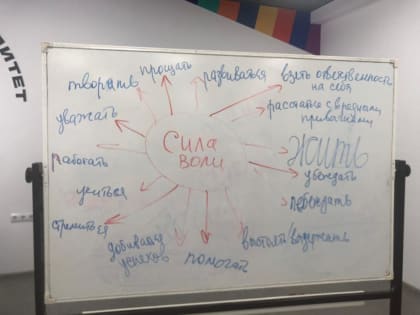 ИТЕТ
прощать
творить
развиваться
взять ответственность
на себя
уважать
расстаться с вредными
привычками
Сила
воли
ЖИТЬ
работать
убеждать
учиться
побеждать
стремиться
добиваться
успехов
помогать
выстоять/выдержать